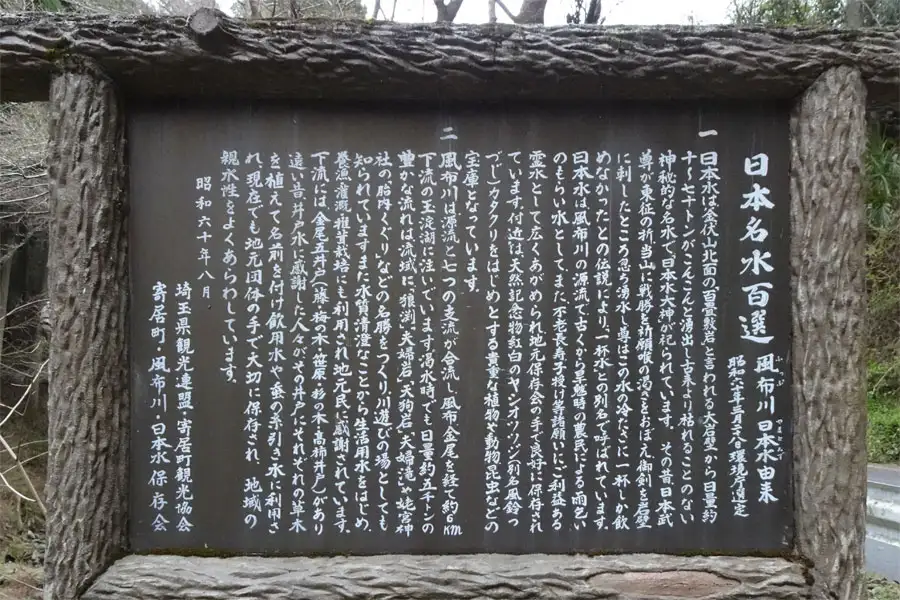 日本名水百選
風布川 日本水由来
ふうぷ やまとみず
昭和六十年三月二八日環境庁選定
一 日本水は釜伏山北面の「百畳敷岩」と言われる大岩壁から日量約
十〜七十トンがこんこんと湧出し古来より枯れることのない
神秘的な名水で日本水大神が祀られています。その昔日本武
尊が東征の折当山に戦勝を祈願喉の渇きをおぼえ御剣を岩壁
に刺したところ忽ち湧水し尊はこの水の冷たさに一杯しか飲
めなかったとの伝説により、「一杯水」の別名で呼ばれています。
日本水は風布川の源流で古くから干ばつ時の農民による雨乞い
のもらい水として、また、不老長寿子授け等諸願いにご利益ある
霊水として広くあがめられ地元保存会の手で良好に保存され
ています。付近は、天然記念物紅白のヤシオツツジ(別名風鈴つ
つじ)カタクリをはじめとする貴重な植物や動物昆虫などの
宝庫となっています。
二 風布川は源流と七つの支流が合流し風布、金尾を経て約6km
下流の玉淀湖に注いでいます渇水時でも日量約五千トンの
豊かな流れは流域に「狼渕」「夫婦岩」「天狗岩」「夫婦滝」や姥宮神
社の胎内くぐりなどの名勝をつくり川遊びの場としても
知られています。また水質清澄なことから生活用水をはじめ、
養漁、灌漑、椎茸栽培にも利用され地元民に感謝されています。
下流には、金尾五井戸(藤・梅の木・笹原・杉の木・高柿井戸)があり
遠い昔井戸水に感謝した人々がその井戸にそれぞれの草木
を植えて名前を付け飲用水や蚕の糸引き水に利用さ
れ、現在でも地元団体の手で大切に保存され、地域の
親水性をよくあらわしています。
昭和六十年八月
埼玉県観光連盟・寄居町観光協会
寄居町・風布川日本水保存会